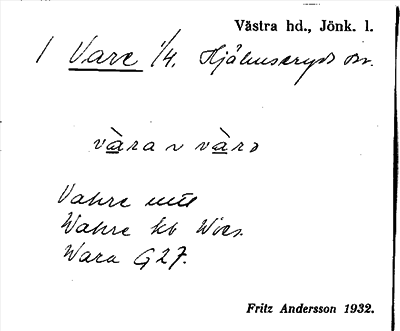 Västra hd., Jönk. l.
1 Vare 1/4. Hjälmseryds sn.
vàra ~ vàrə
Vahre
Wahre kb
Wara G27.
Fritz Andersson 1932.